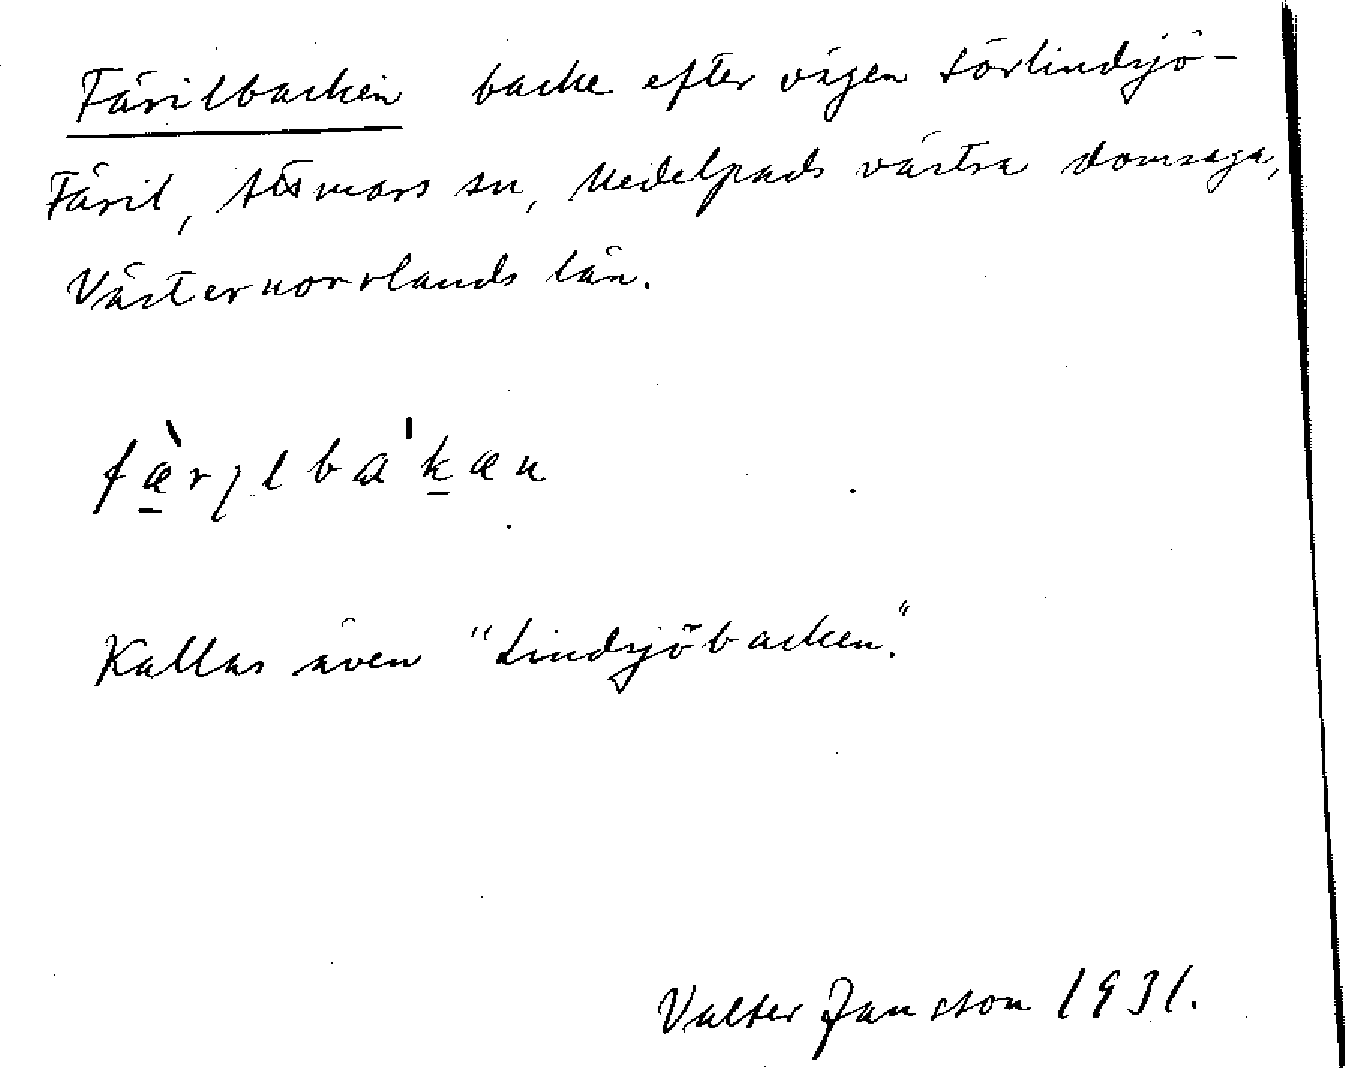 Färilbacken backe efter vägen Sörlindsjö-
Färil, Attmars sn, Medelpads västra domsaga,
Västernorrlands län.
fæ̀rɩlba'kæn
Kallas även "Lindsjöbacken."
Valter Jansson 1931.